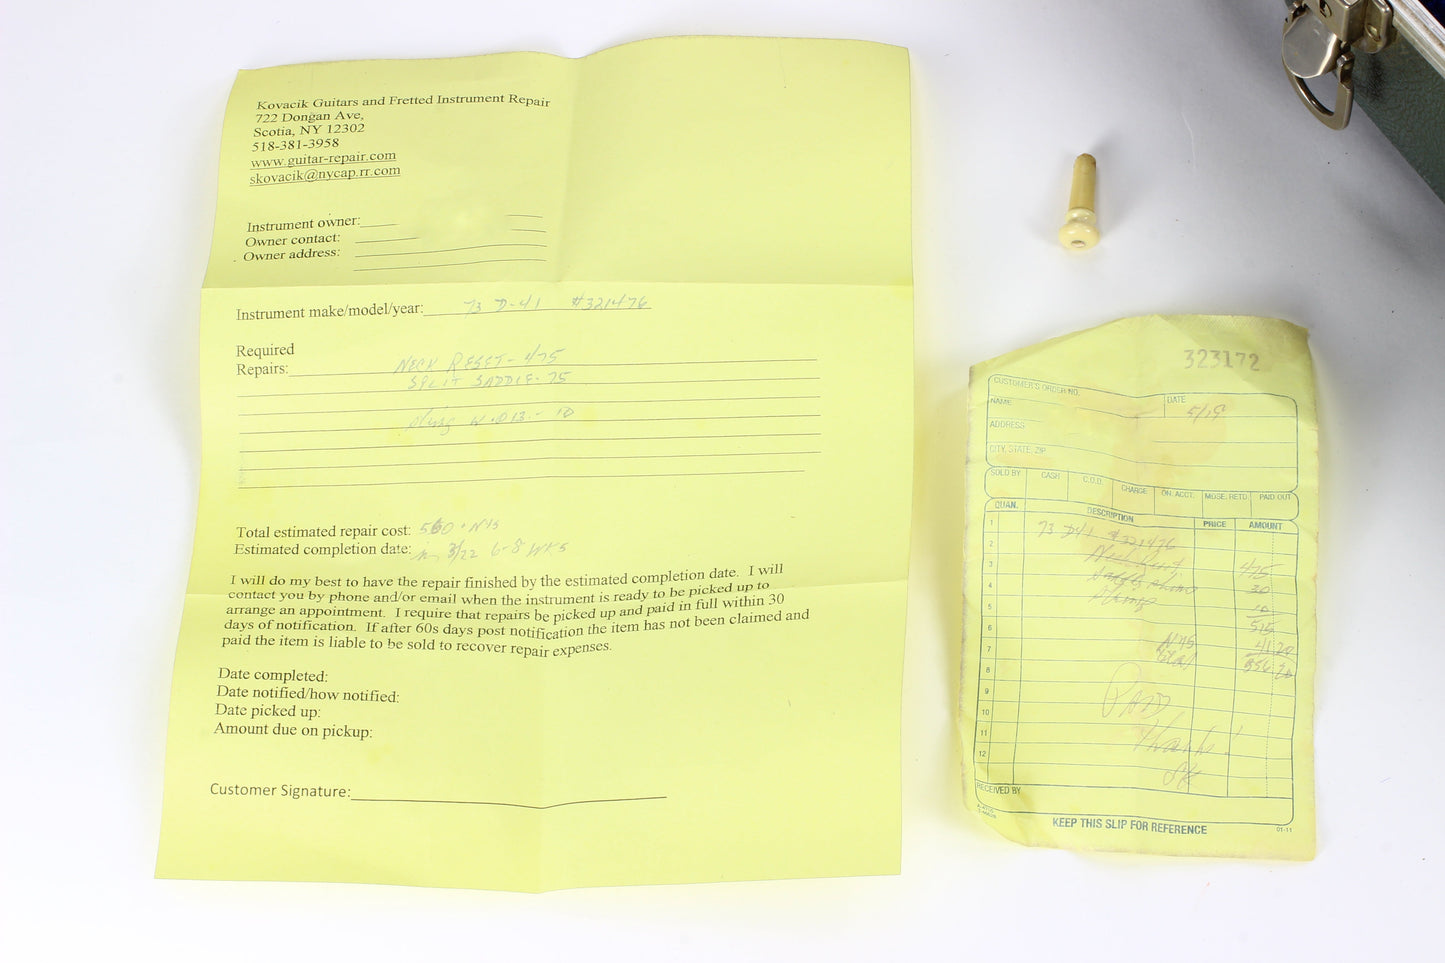 Kovacik Guitars and Fretted Instrument Repair
722 Dongan Ave,
Scotia, NY 12302
518-381-3958
www.guitar-repair.com
skovacik@nycap.rr.com
Instrument owner:
Owner contact:
Owner address:
Instrument make/model/year: 73 D-41 #321476
Required
Repairs: NECK RESET - 475
SPLIT SADDLE - 75
- 10
Total estimated repair cost: 560 + NYS
Estimated completion date: in 3/22 6-8 WKS
I will do my best to have the repair finished by the estimated completion date. I will
contact you by phone and/or email when the instrument is ready to be picked up to
arrange an appointment. I require that repairs be picked up and paid in full within 30
days of notification. If after 60s days post notification the item has not been claimed and
paid the item is liable to be sold to recover repair expenses.
Date completed:
Date notified/how notified:
Date picked up:
Amount due on pickup:
Customer Signature:
323172
CUSTOMER'S ORDER NO.
NAME
DATE
5/19
ADDRESS
CITY, STATE, ZIP
SOLD BY CASH C.O.D. CHARGE ON. ACCT. MDSE. RETD. PAID OUT
QUAN. DESCRIPTION PRICE AMOUNT
1 73 D41 #321476
2 475
3 30
4 10
5 515
6 NYS 41 20
7 Total 556 20
8
9 PAID
10
11 Thanks!
12 SK
RECEIVED BY
KEEP THIS SLIP FOR REFERENCE
01-11